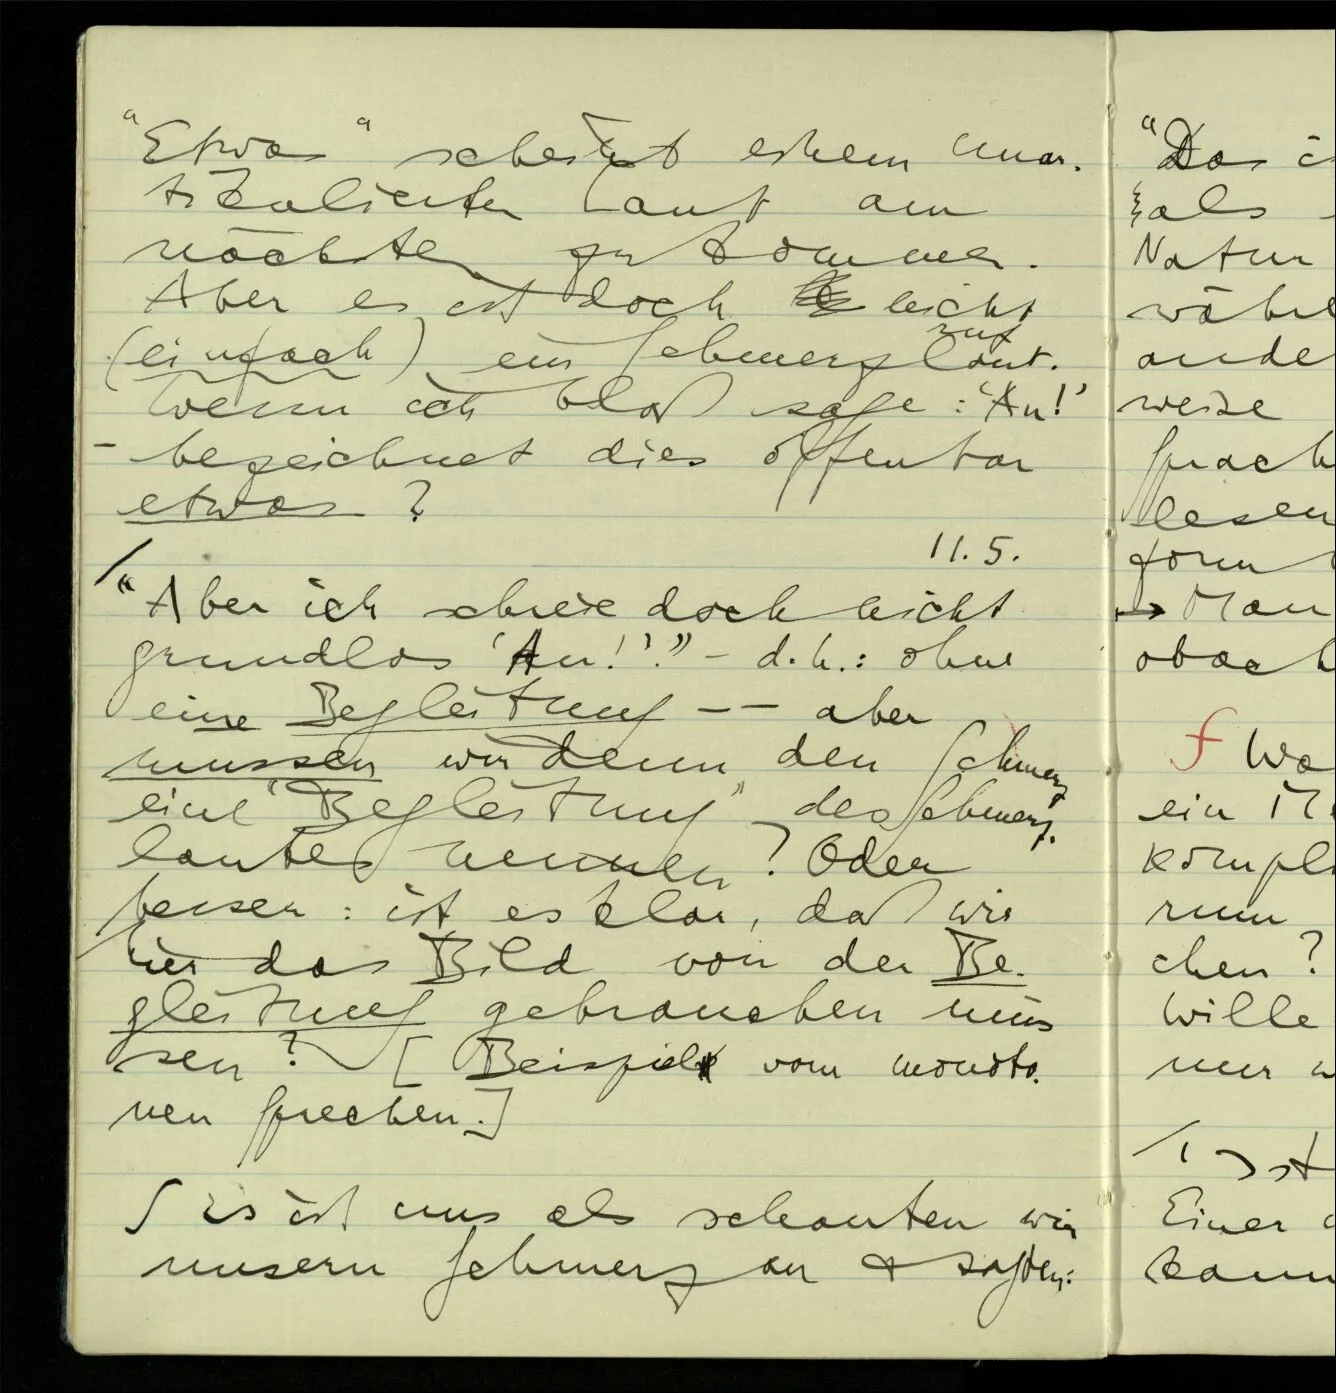 "Etwas" scheint einem unar-
tikulierten Laut am
nächsten zu kommen.
Aber es ist doch nicht
(einfach) ein Schmerzlaut.
Wenn ich bloß sage: 'Au!'
– bezeichnet dies offenbar
etwas?
11.5.
/ "Aber ich schreie doch nicht
grundlos 'Au!'." – d.h.: ohne
eine Begleitung –– aber
müssen wir denn den Schmerz
eine "Begleitung" des Schmerz-
lautes nennen? Oder
besser: ist es klar, daß wir
hier das Bild von der Be-
gleitung gebrauchen müs
sen? [Beispiel vom monoto-
nen Sprechen.]
∫ Es ist uns als schauten wir
unsern Schmerz an & sagten:
"Das
als
Natur
ande
weise
Sprach
lesen
form
→ Man
obach
∫ Wa
ein
kompl
rum
chen?
Wille
nur w
/ Ist
Einer
kann